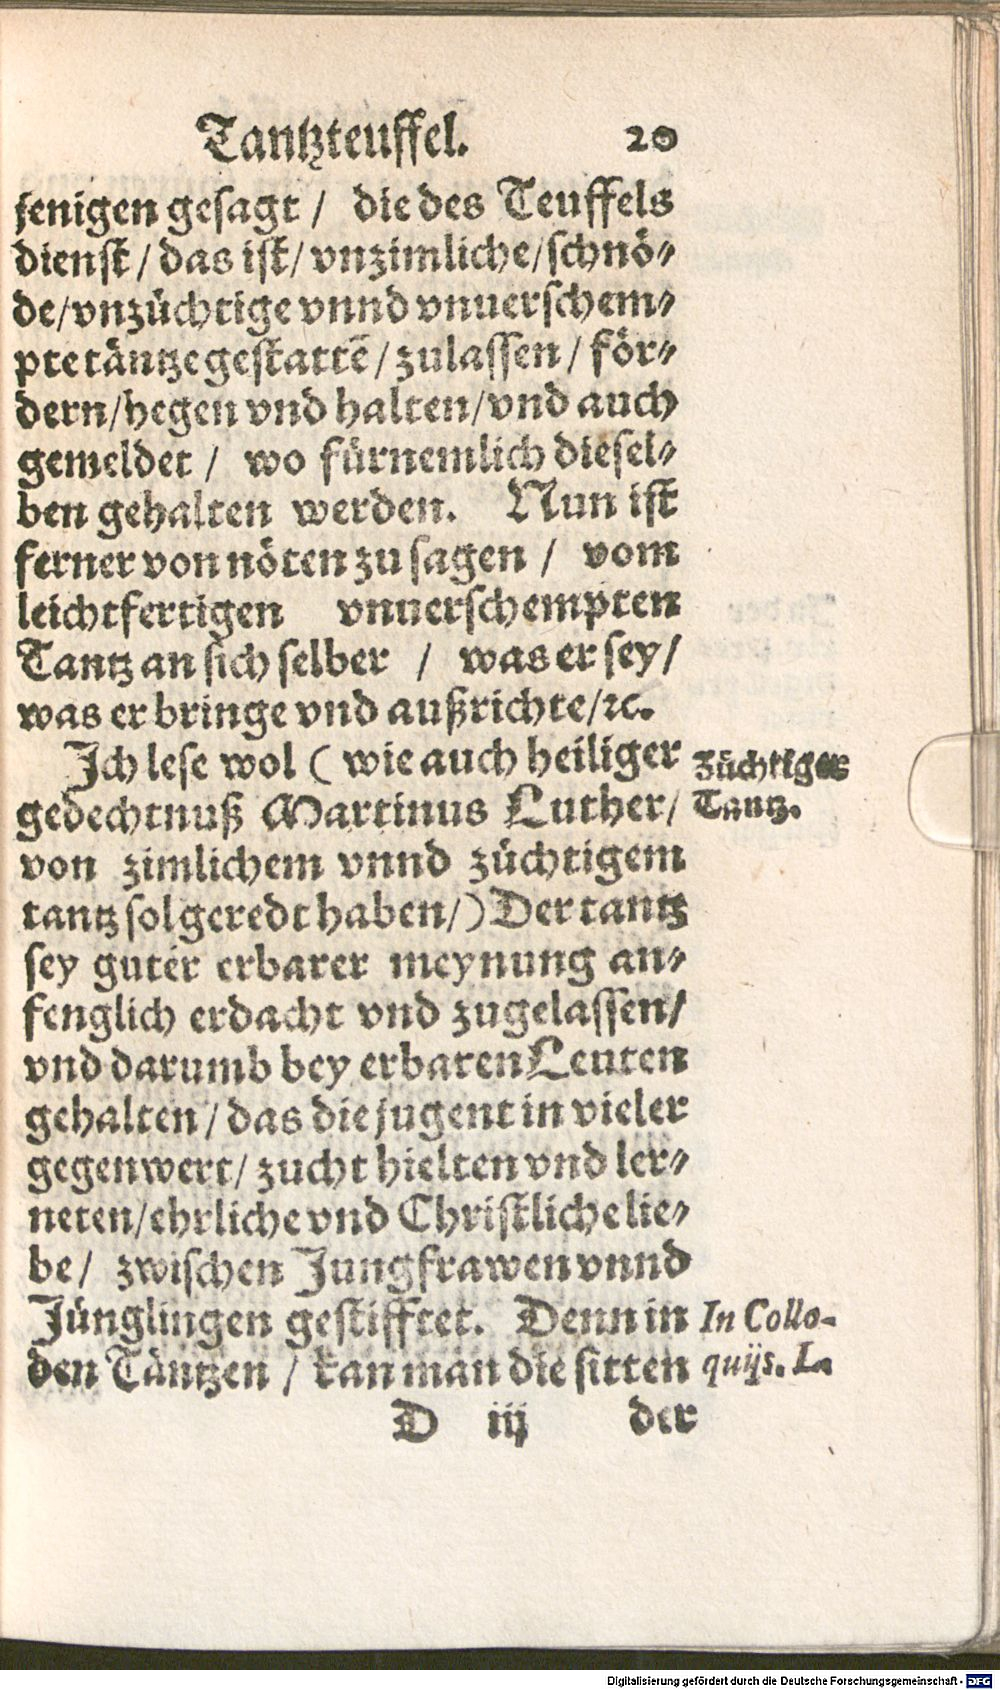 Tantzteuffel. 20
jenigen gesagt / die des Teuffels
dienst / das ist / vnzimliche / schnö-
de / vnzüchtige vnnd vnuerschem-
pte täntze gestattē / zulassen / för-
dern / hegen vnd halten / vnd auch
gemeldet / wo fürnemlich diesel-
ben gehalten werden. Nun ist
ferner von nöten zu sagen / vom
leichtfertigen vnuerschempten
Tantz an sich selber / was er sey /
was er bringe vnd außrichte / ꝛc.
Ich lese wol ( wie auch heiliger
gedechtnuß Martinus Luther /
von zimlichem vnnd züchtigem
tantz sol geredt haben / ) Der tantz
sey guter erbarer meynung an-
fenglich erdacht vnd zugelassen /
vnd darumb bey erbaren Leuten
gehalten / das die jugent in vieler
gegenwert / zucht hielten vnd ler-
neten / ehrliche vnd Christliche lie-
be / zwischen Jungfrawen vnnd
Jünglingen gestifftet. Denn in
den Täntzen / kan man die sitten
D iij der
Züchtiger
Tantz.
In Collo-
quijs. L.
Digitalisierung gefördert durch die Deutsche Forschungsgemeinschaft - DFG